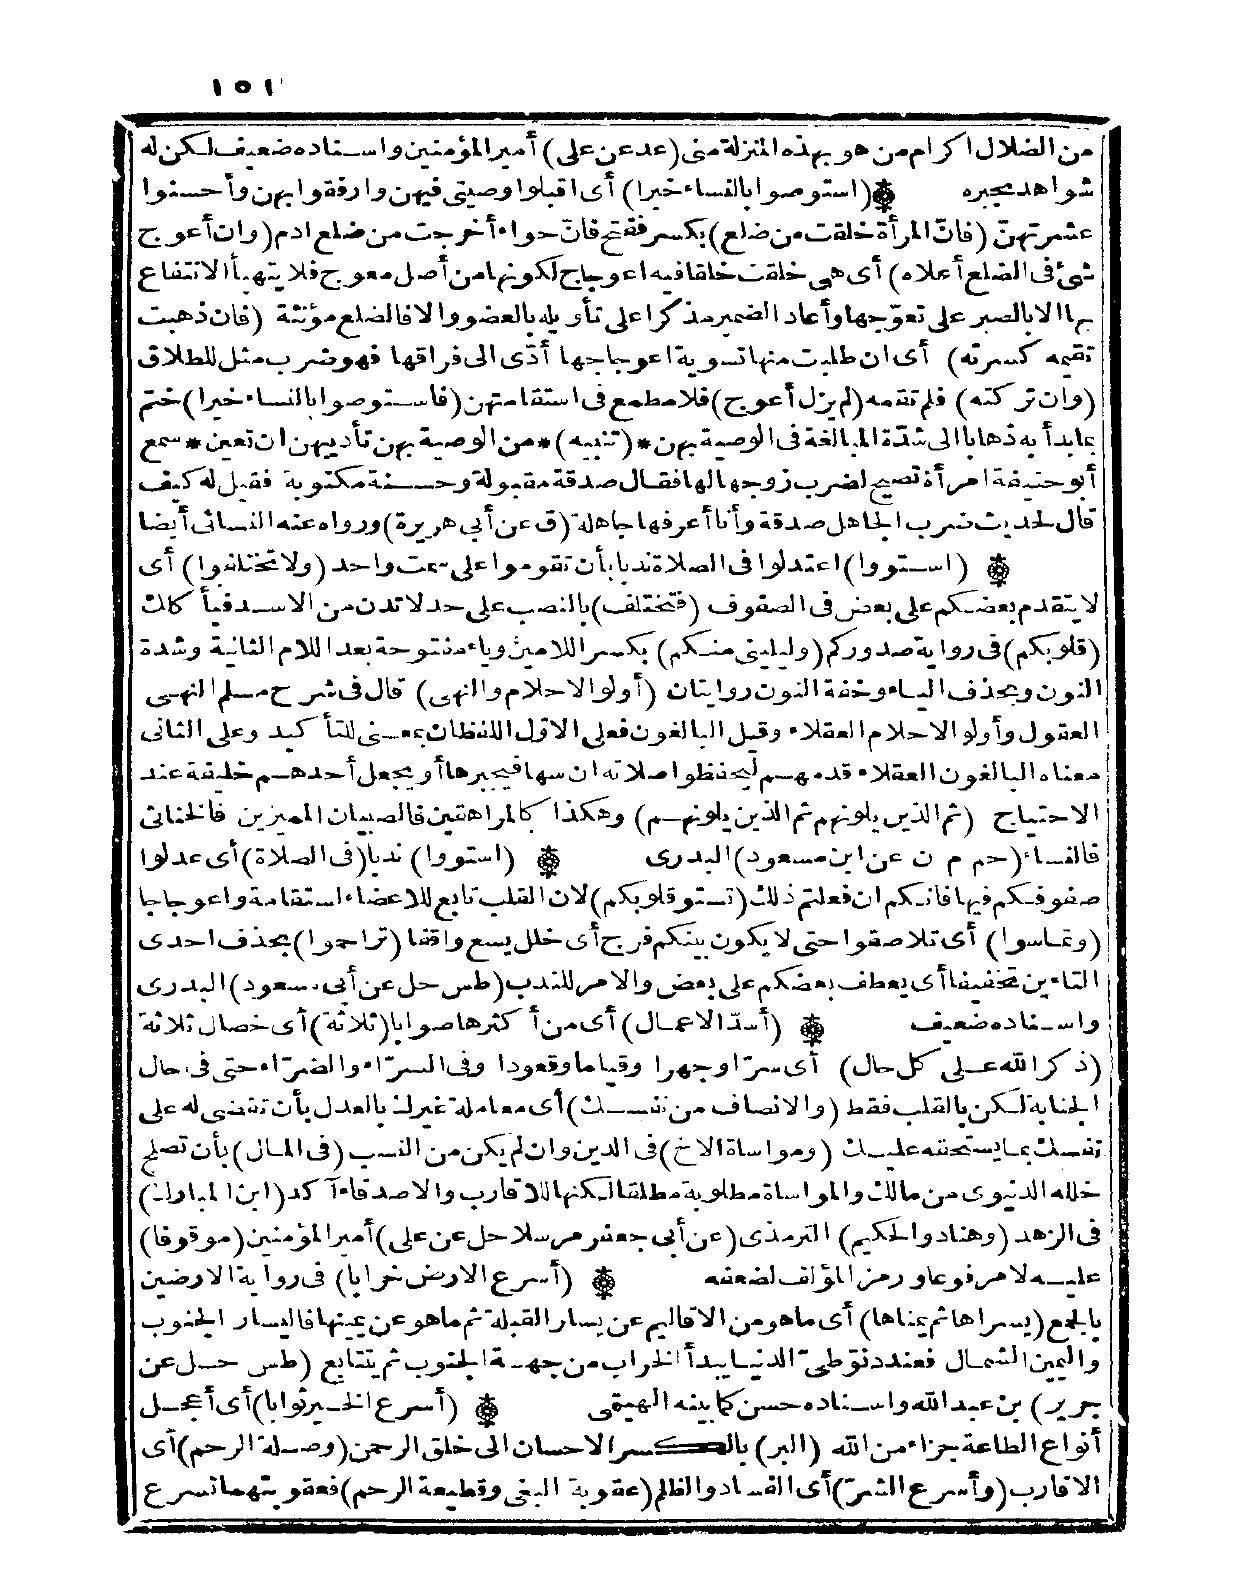 ١٥١
من الضلال اكرام من هو بهذه المنزلة منى (عد عن على) أمير المؤمنين واسناده ضعيف لكن له
شواهد تجبره ۞ (استوصوا بالنساء خيرا) أى اقبلوا وصيتى فيهن وارفقوا بهن وأحسنوا
عشرتهنّ (فانّ المرأة خلقت من ضلع) بكسر ففتح فانّ حواء أخرجت من ضلع ادم (وان أعوج
شئ فى الضلع أعلاه) أى هى خلقت خلقا فيه اعوجاج لكونها من أصل معوج فلا يتهيأ الانتفاع
بها الا بالصبر على تعوّجها وأعاد الضمير مذكرا على تأويله بالعضو والا فالضلع مؤنثة (فان ذهبت
تقيمه كسرته) أى ان طلبت منها تسوية اعوجاجها أدّى الى فراقها فهو ضرب مثل للطلاق
(وان تركته) فلم تقمه (لم يزل أعوج) فلا مطمع فى استقامتهن (فاستوصوا بالنساء خيرا) ختم
بما بدأ به ذهابا الى شدّة المبالغة فى الوصية بهن * (تنبيه) * من الوصية بهن تأديبهن ان تعين * سمع
أبو حنيفة امرأة تصيح لضرب زوجها لها فقال صدقة مقبولة وحسنة مكتوبة فقيل له كيف
قال لحديث ضرب الجاهل صدقة وأنا أعرفها جاهلة (ق عن أبى هريرة) ورواه عنه النسائى أيضا
۞ (استووا) اعتدلوا فى الصلاة ندبا بأن تقوموا على سمت واحد (ولا تختلفوا) أى
لا يتقدم بعضكم على بعض فى الصفوف (فتختلف) بالنصب على حد لا تدن من الاسد فيأكلك
(قلوبكم) فى رواية صدوركم (وليلينى منكم) بكسر اللامين وياء مفتوحة بعد اللام الثانية وشدة
النون وبحذف الياء وخفة النون روايتان (أولو الاحلام والنهى) قال فى شرح مسلم النهى
العقول وأولو الاحلام العقلاء وقيل البالغون فعلى الاوّل اللفظان بمعنى للتأكيد وعلى الثانى
معناه البالغون العقلاء قدمهم ليحفظوا صلاته ان سها فيجبرها أو يجعل أحدهم خليفة عند
الاحتياج (ثم الذين يلونهم ثم الذين يلونهم) وهكذا كالمراهقين فالصبيان المميزين فالخناثى
فالنساء (حم م ن عن ابن مسعود) البدرى ۞ (استووا) ندبا (فى الصلاة) أى عدلوا
صفوفكم فيها فانكم ان فعلتم ذلك (تستو قلوبكم) لان القلب تابع للاعضاء استقامة واعوجاجا
(وتماسوا) أى تلاصقوا حتى لا يكون بينكم فرج أى خلل يسع واقفا (تراحموا) بحذف احدى
التاءين تخفيفا أى يعطف بعضكم على بعض والامر للندب (طس حل عن أبى مسعود) البدرى
واسناده ضعيف ۞ (أسدّ الاعمال) أى من أكثرها صوابا (ثلاثة) أى خصال ثلاثة
(ذكر الله على كل حال) أى سرّا وجهرا وقياما وقعودا وفى السرّاء والضرّاء حتى فى حال
الجنابة لكن بالقلب فقط (والانصاف من نفسك) أى معاملة غيرك بالعدل بأن تقضى له على
نفسك بما يستحقه عليك (ومواساة الاخ) فى الدين وان لم يكن من النسب (فى المال) بأن تصلح
خلله الدنيوى من مالك والمواساة مطلوبة مطلقا لكنها للاقارب والاصدقاء آكد (ابن المبارك)
فى الزهد (وهناد والحكيم) الترمذى (عن أبى جعفر مرسلا حل عن على) أمير المؤمنين (موقوفا)
عليه لا مرفوعا ورمز المؤلف لضعفه ۞ (أسرع الارض خرابا) فى رواية الارضين
بالجمع (يسراها ثم يمناها) أى ما هو من الاقاليم عن يسار القبلة ثم ما هو عن يمينها فاليسار الجنوب
واليمين الشمال فعند دنو طىّ الدنيا يبدأ الخراب من جهة الجنوب ثم يتتابع (طس حل عن
جرير) بن عبد الله واسناده حسن كما بينه الهيثمى ۞ (أسرع الخير ثوابا) أى أعجل
أنواع الطاعة جزاء من الله (البر) بالكسر الاحسان الى خلق الرحمن (وصلة الرحم) أى
الاقارب (وأسرع الشرّ) أى الفساد والظلم (عقوبة البغى وقطيعة الرحم) فعقوبتهما تسرع